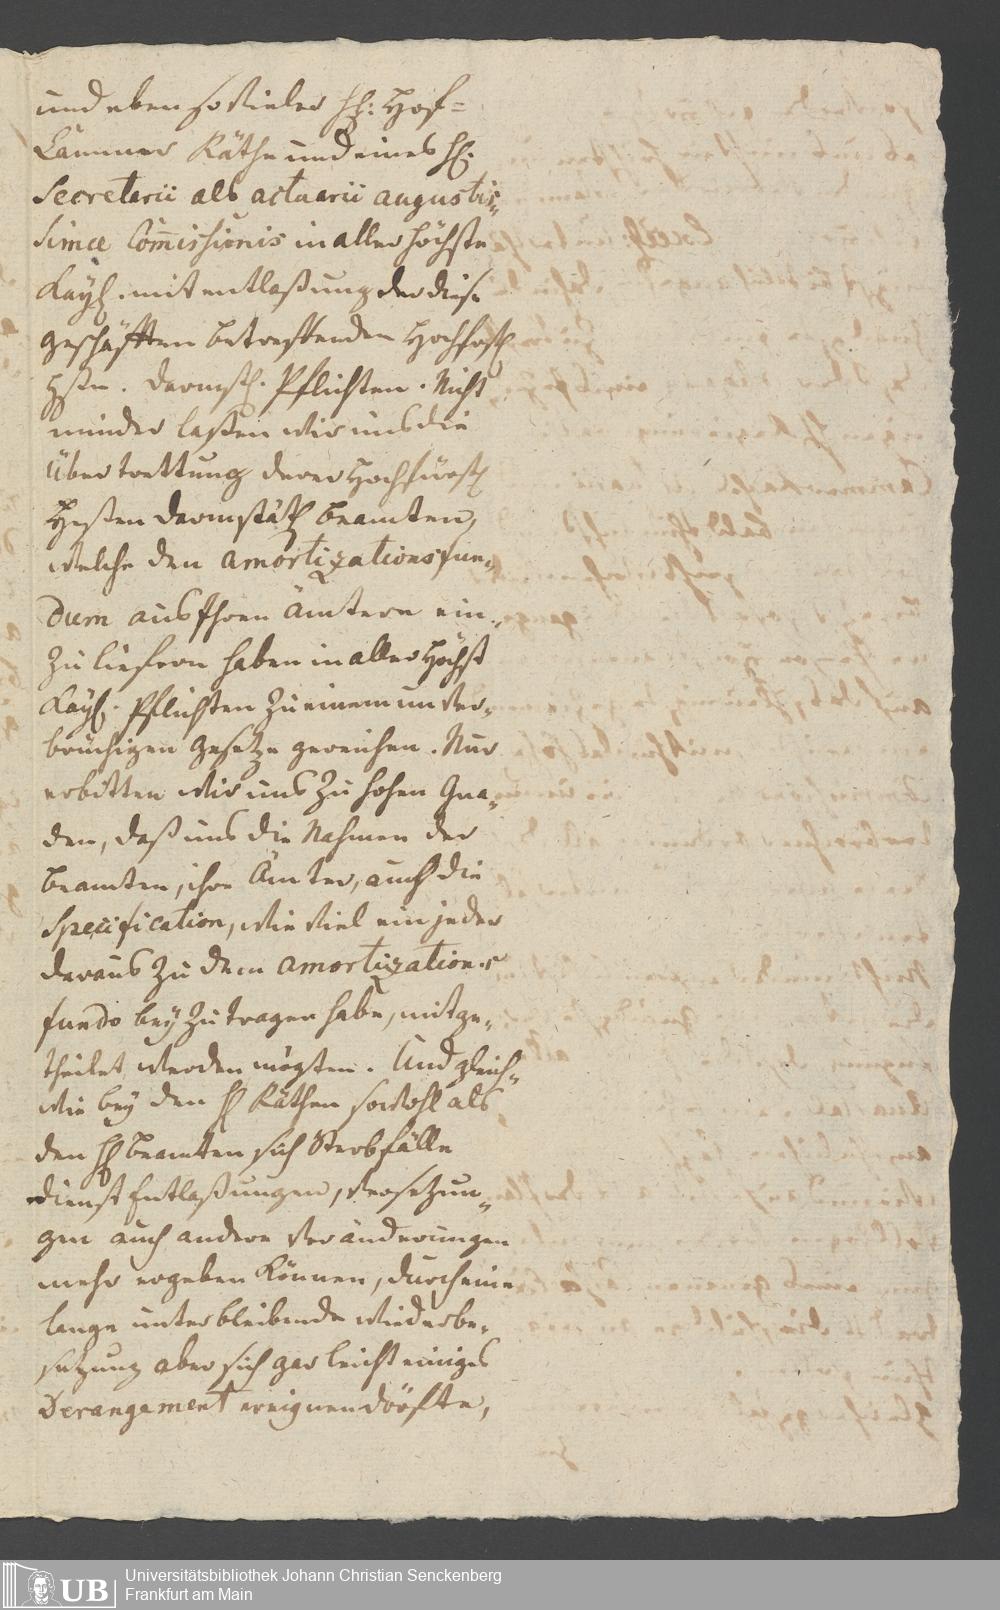 und eben so vieler H: Hof=
Cammer Räthe und eines H:
Secretarii als actuarii augustis„
simæ Com̄issionis in aller höchste
Kayß. mit entlaßung der diese
geschäfften betreffenden Hochfürstl
Heßen. Darmst. Pflichten. Nicht
minder laßen wir uns die
Übertrettung derer Hochfürstl
Heßen Darmstätl Beamten,
welche den amortizationsfun„
dum aus ihren ämtern ein„
zu liefern haben in aller Höchst
Kayß. Pflichten zu einem unver„
brüchigen gesetze gereichen. Nur
erbitten wir uns zu hohen Gna„
den, daß uns die Nahmen der
Beamten, ihre Ämter, auch die
Specification, wie viel ein jeder
daraus zu dem amortizations
fundo bey zu tragen habe, mitge„
theilet werden mögten. Und gleich„
wie bey den H Räthen sowohl als
den H Beamten sich Sterbfälle
dienst Entlaßungen, versetzun„
gen auch andere Veränderungen
mehr ergeben können, durch eine
lange unterbleibende wiederbe„
setzung aber sich gar leicht einiges
Derangement ereignen dörfte,
UB
Universitätsbibliothek Johann Christian Senckenberg
Frankfurt am Main